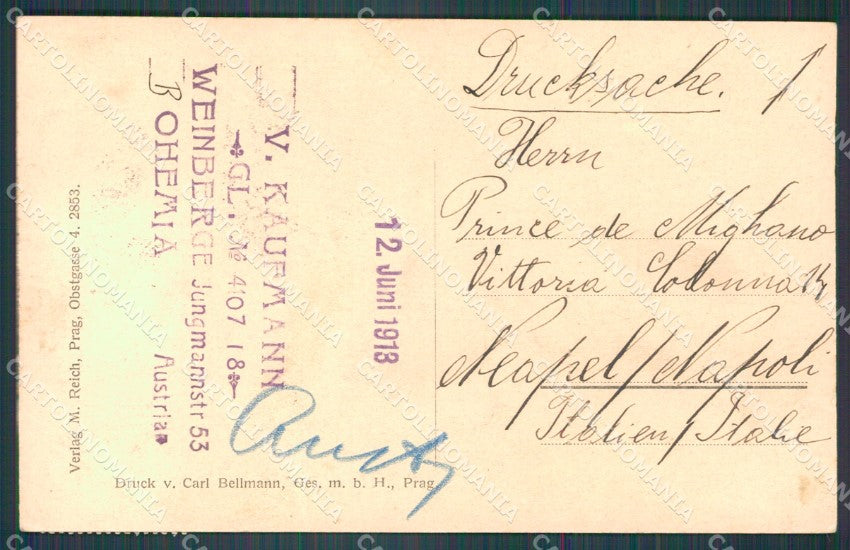 Drucksache. 1
Herrn
Prince de Mighano
Vittoria Colonna 14
Neapel / Napoli
Italien / Italie
12. Juni 1913
V. KAUFMANN
GL. № 407 18
WEINBERGE Jungmannstr 53
BOHEMIA Austria
Verlag M. Reich, Prag, Obstgasse 4. 2853.
Druck v. Carl Bellmann, Ges. m. b. H., Prag
CARTOLINOMANIA